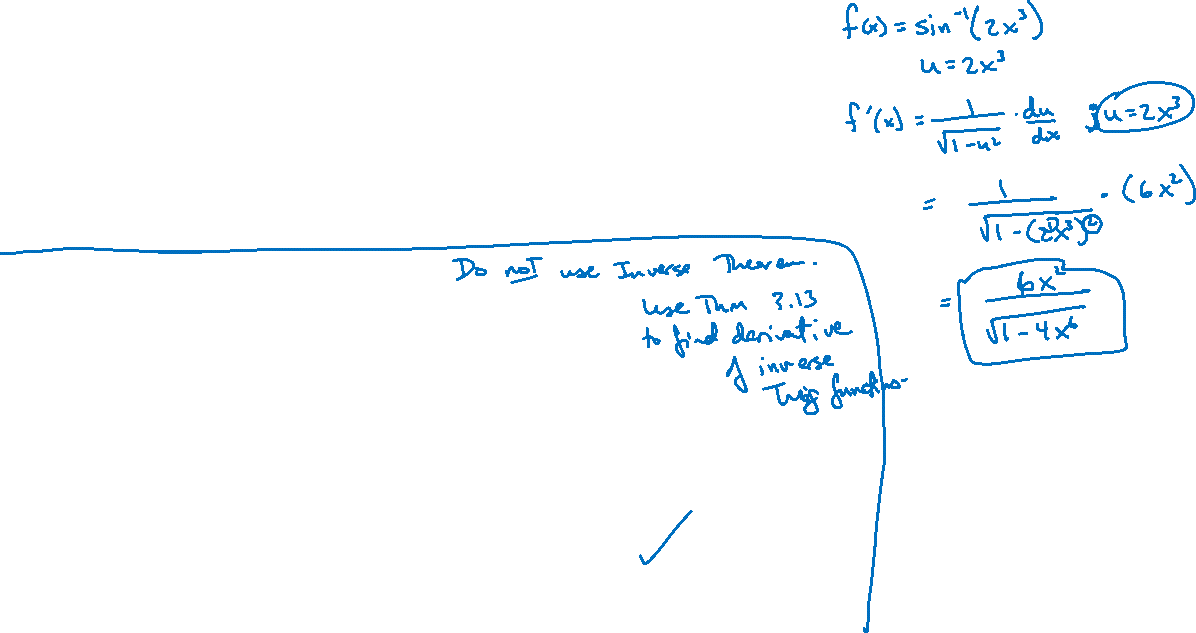 f(x) = sin⁻¹(2x³)
u = 2x³
f'(x) = 1/√(1-u²) · du/dx } u = 2x³
= 1/√(1-(2x³)²) · (6x²)
= 6x²/√(1-4x⁶)
Do not use Inverse Theorem.
Use Thm 3.13
to find derivative
of inverse
Trig function